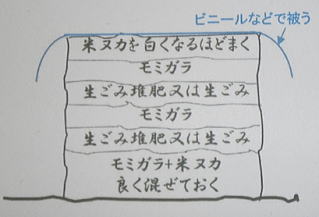 ビニールなどで被う
米ヌカを白くなるほどまく
モミガラ
生ごみ堆肥又は生ごみ
モミガラ
生ごみ堆肥又は生ごみ
モミガラ+米ヌカ
良く混ぜておく